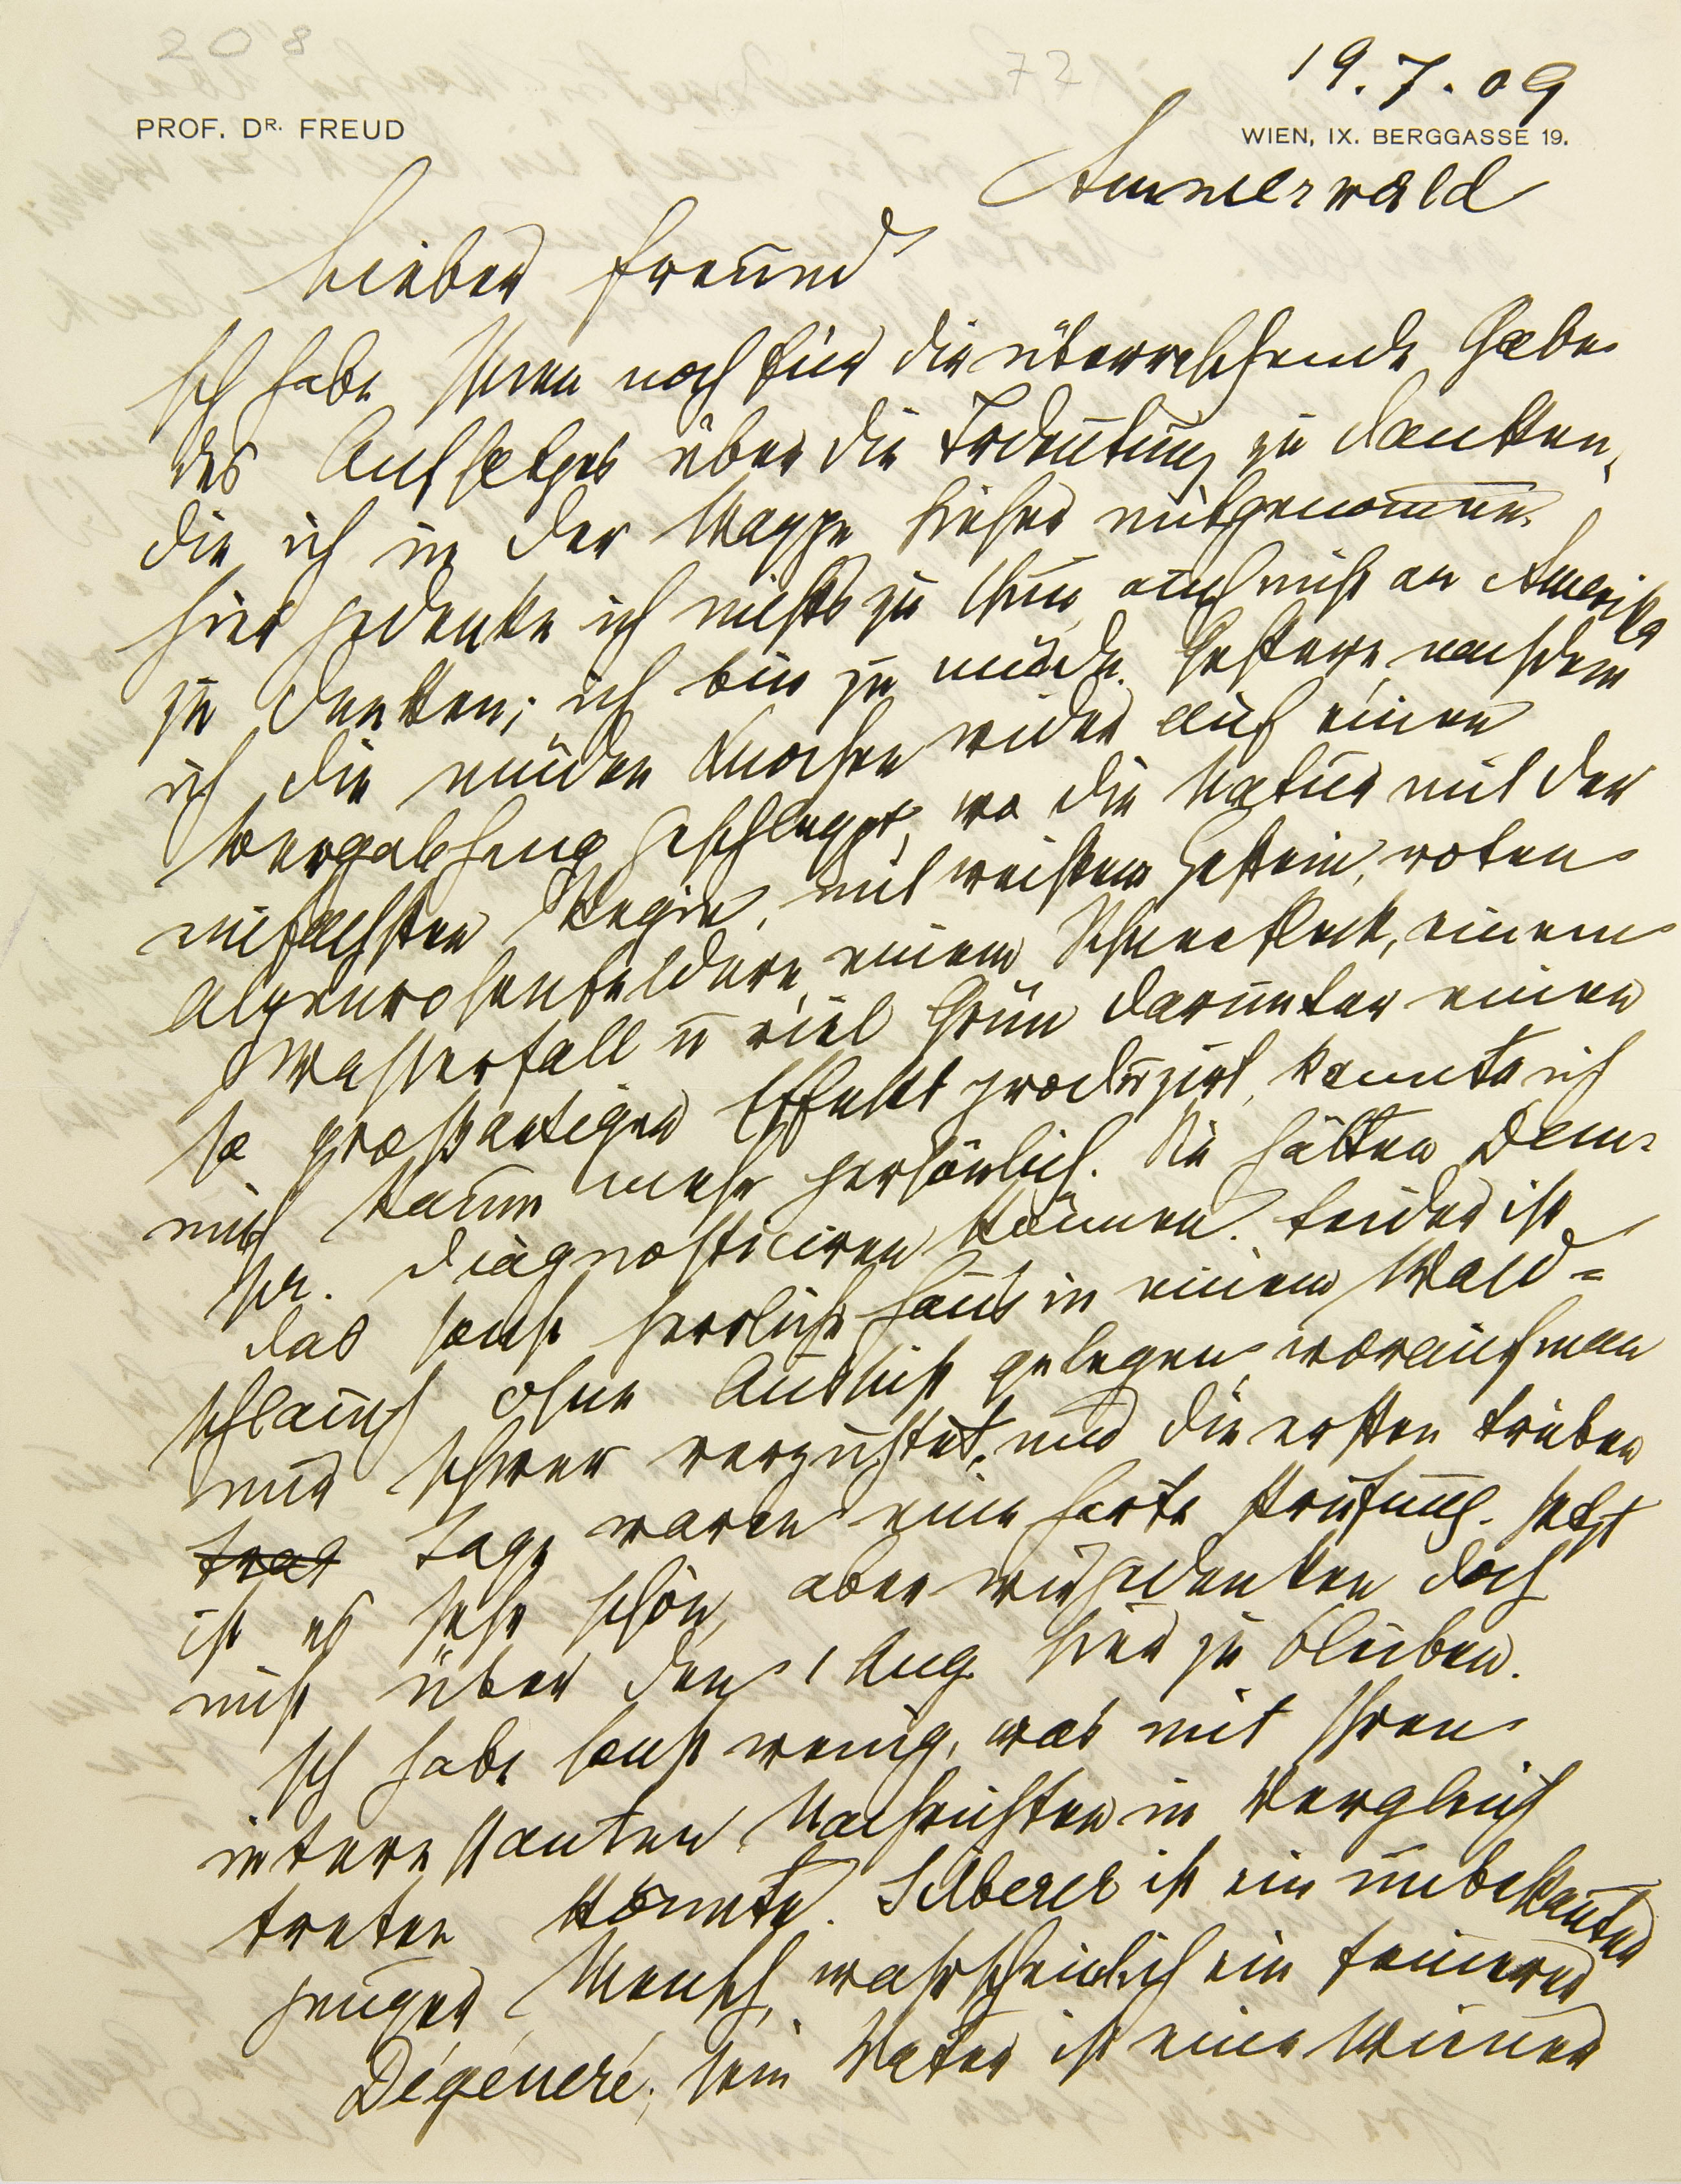 208
72
19.7.09
PROF. DR. FREUD
WIEN, IX. BERGGASSE 19.
Ammerwald
Lieber Freund
Ich habe Ihnen noch für die überraschende Gabe
des Aufsatzes über die Bedeutung zu danken,
die ich in der Mappe hieher mitgenommen.
Hier gedenke ich nichts zu thun, auch nicht an Amerika
zu denken; ich bin zu müde. Gestern, nachdem
ich die müden Knochen wider auf einen
Bergabhang geschleppt, wo die Natur mit der
einfachsten Regie, mit weißem Gestein, roten
Alpenrosenfeldern, einem Schneefleck, einem
Wasserfall u viel Grün darunter einen
so großartigen Effekt produzirt, kannte ich
mich kaum mehr persönlich. Sie hätten Dem.
Pr. diagnosticiren können. Leider ist
das sonst herrliche Haus in einem Wald-
schlauch ohne Aussicht gelegen, worauf man
nur schwer verzichtet, und die ersten trüben
Tage waren eine harte Prüfung. Jetzt
ist es sehr schön, aber wir gedenken doch
nicht über den 1 Aug hier zu bleiben.
Ich habe sonst wenig, was mit Ihren
interessanten Nachrichten in Vergleich
treten könnte. Silberer ist ein unbekannter
junger Mensch, wahrscheinlich ein feinerer
Dégéneré; sein Vater ist eine Wiener